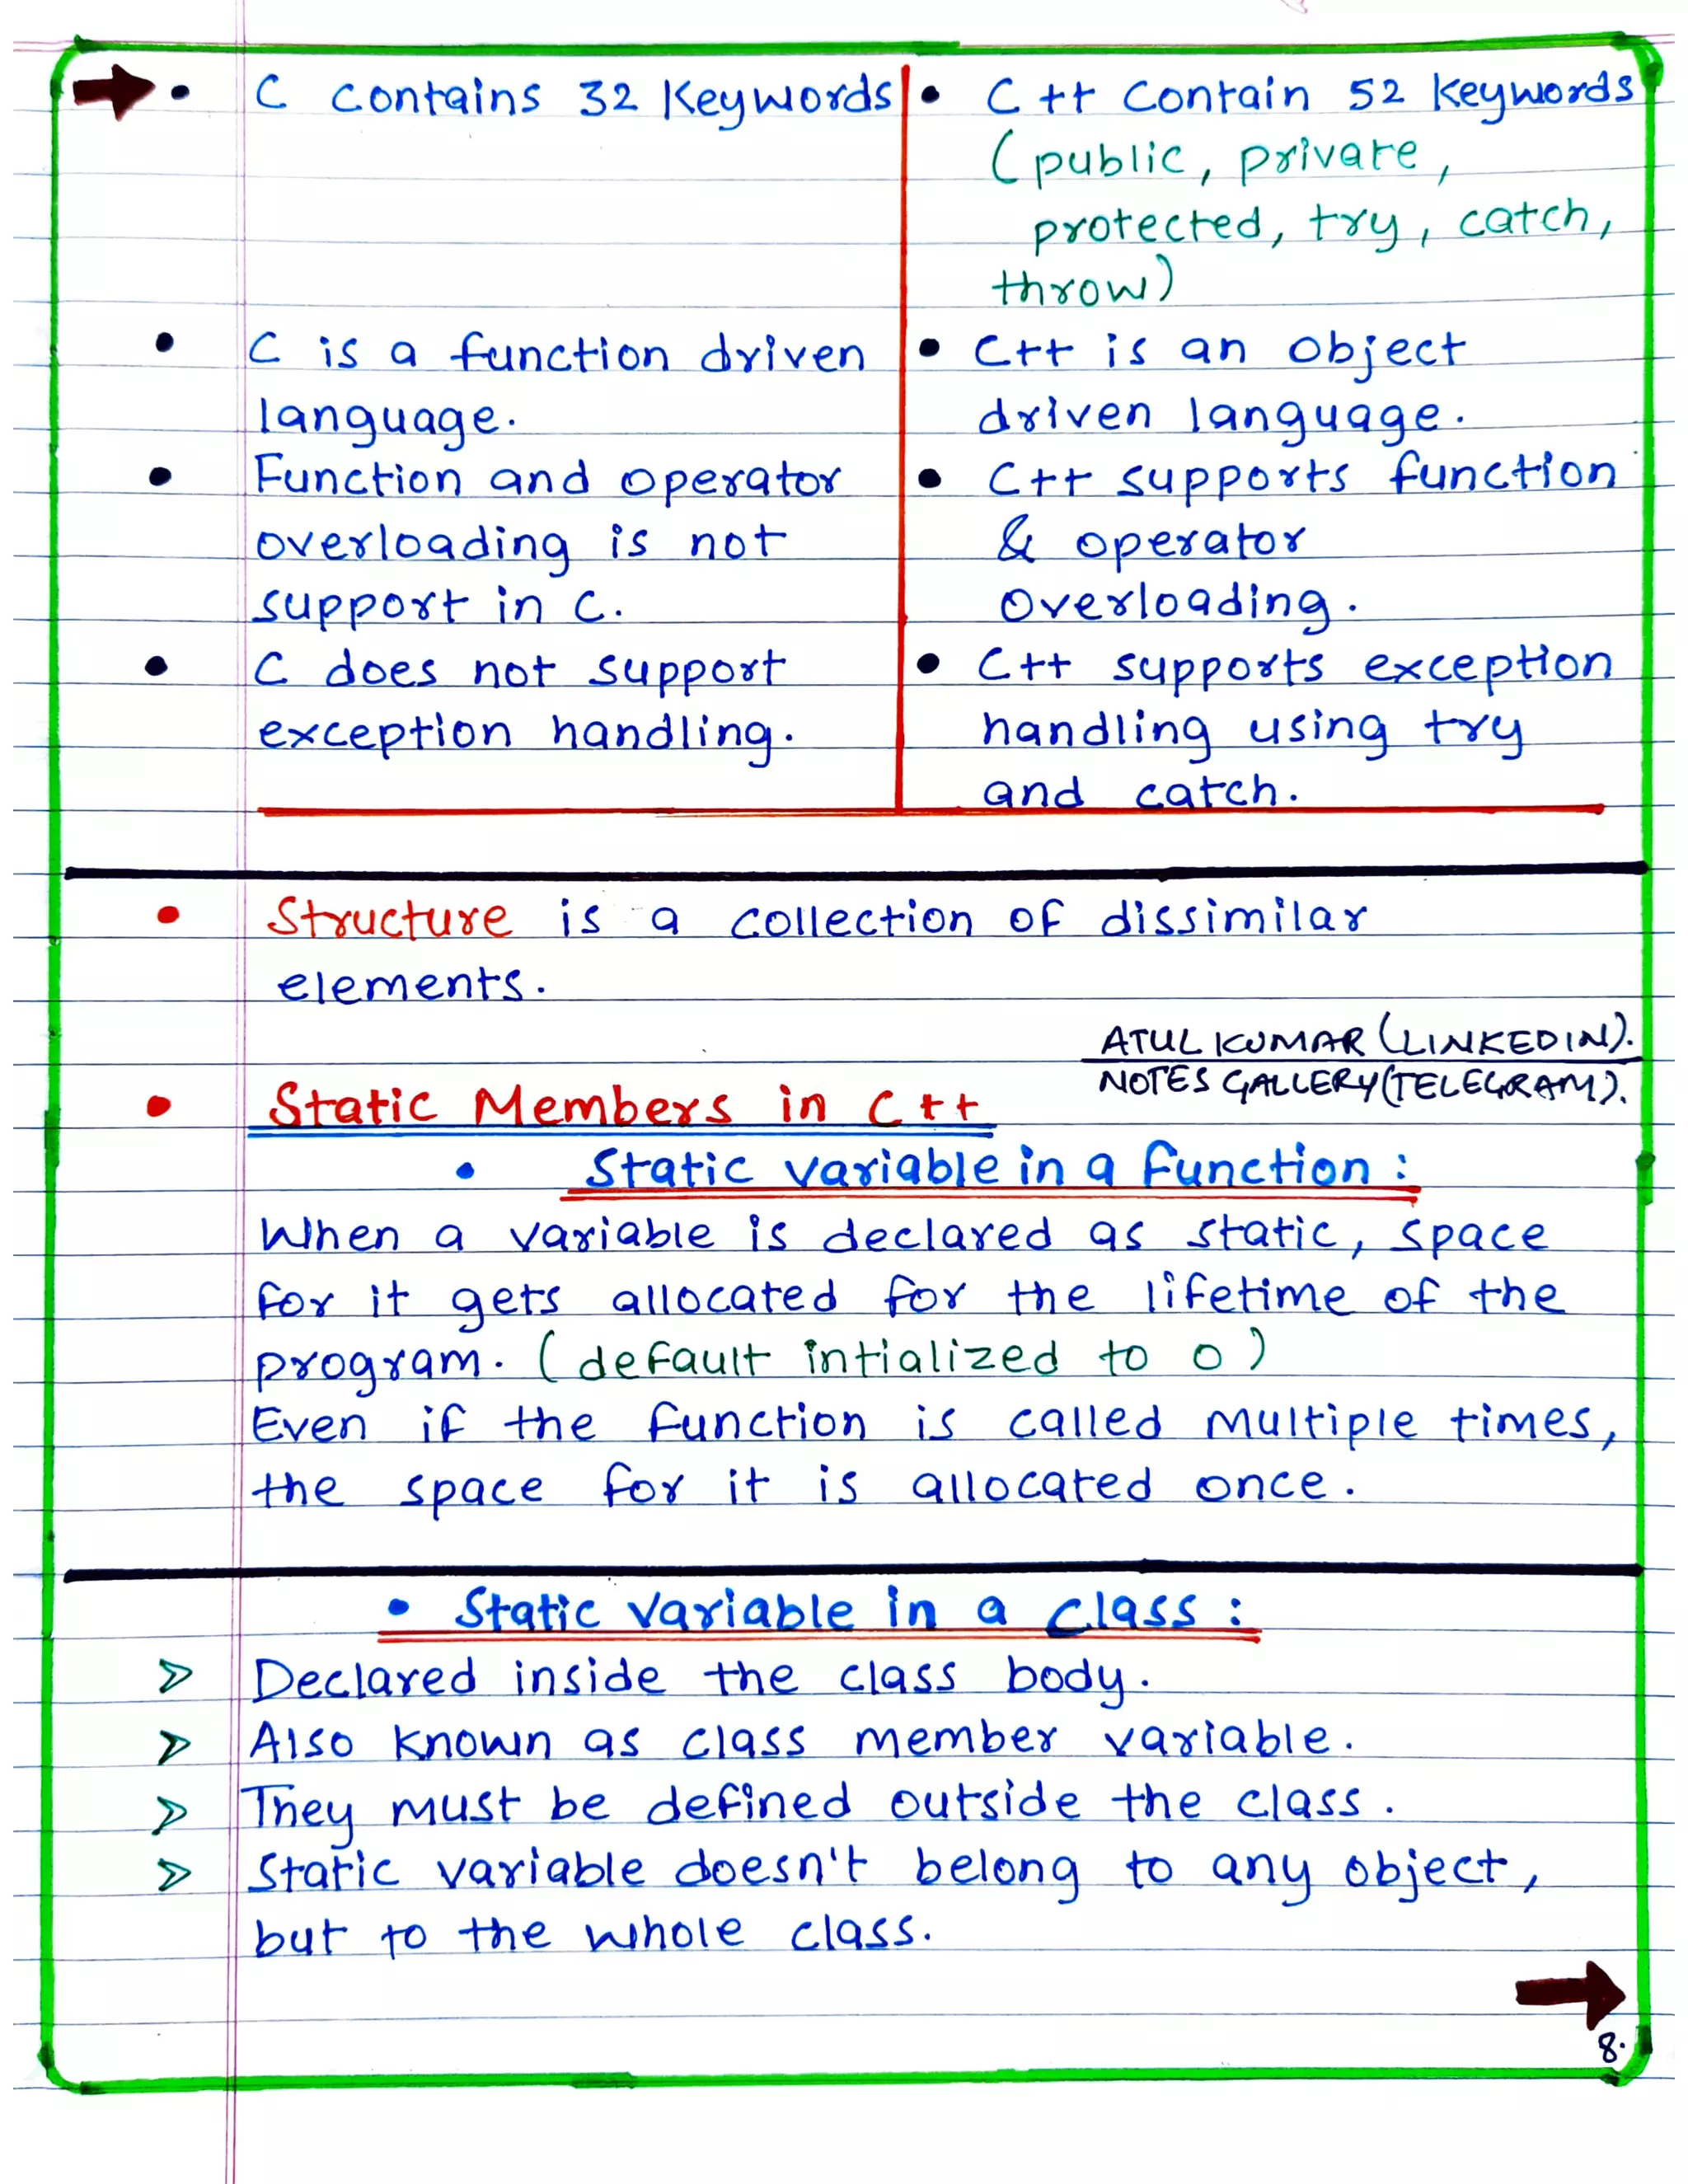 • C contains 32 Keywords
• C++ Contain 52 Keywords
(public, private,
protected, try, catch,
throw)
• C is a function driven
language.
• C++ is an object
driven language.
• Function and operator
overloading is not
support in C.
• C++ supports function
& operator
overloading.
• C does not support
exception handling.
• C++ supports exception
handling using try
and catch.
• Structure is a collection of dissimilar
elements.
ATUL KUMAR (LINKEDIN).
NOTES GALLERY(TELEGRAM).
• Static Members in C++
• Static variable in a function :
When a variable is declared as static, space
for it gets allocated for the lifetime of the
program. (default intialized to 0)
Even if the function is called multiple times,
the space for it is allocated once.
• Static variable in a class :
> Declared inside the class body.
> Also known as class member variable.
> They must be defined outside the class.
> Static variable doesn't belong to any object,
but to the whole class.
8.